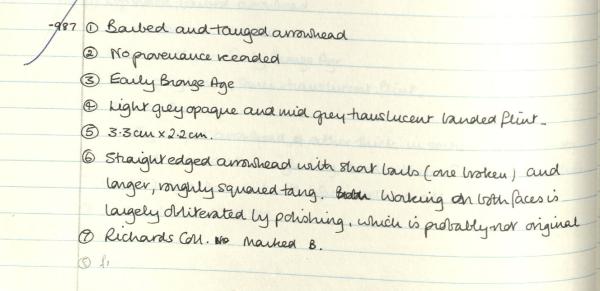 -987 ① Barbed and-tanged arrowhead
② No provenance recorded
③ Early Bronze Age
④ Light grey opaque and mid grey translucent banded flint.
⑤ 3.3cm x 2.2cm.
⑥ Straight edged arrowhead with short barbs (one broken) and
longer, roughly squared tang. Working on both faces is
largely obliterated by polishing, which is probably not original
⑦ Richards Coll. No Marked B.